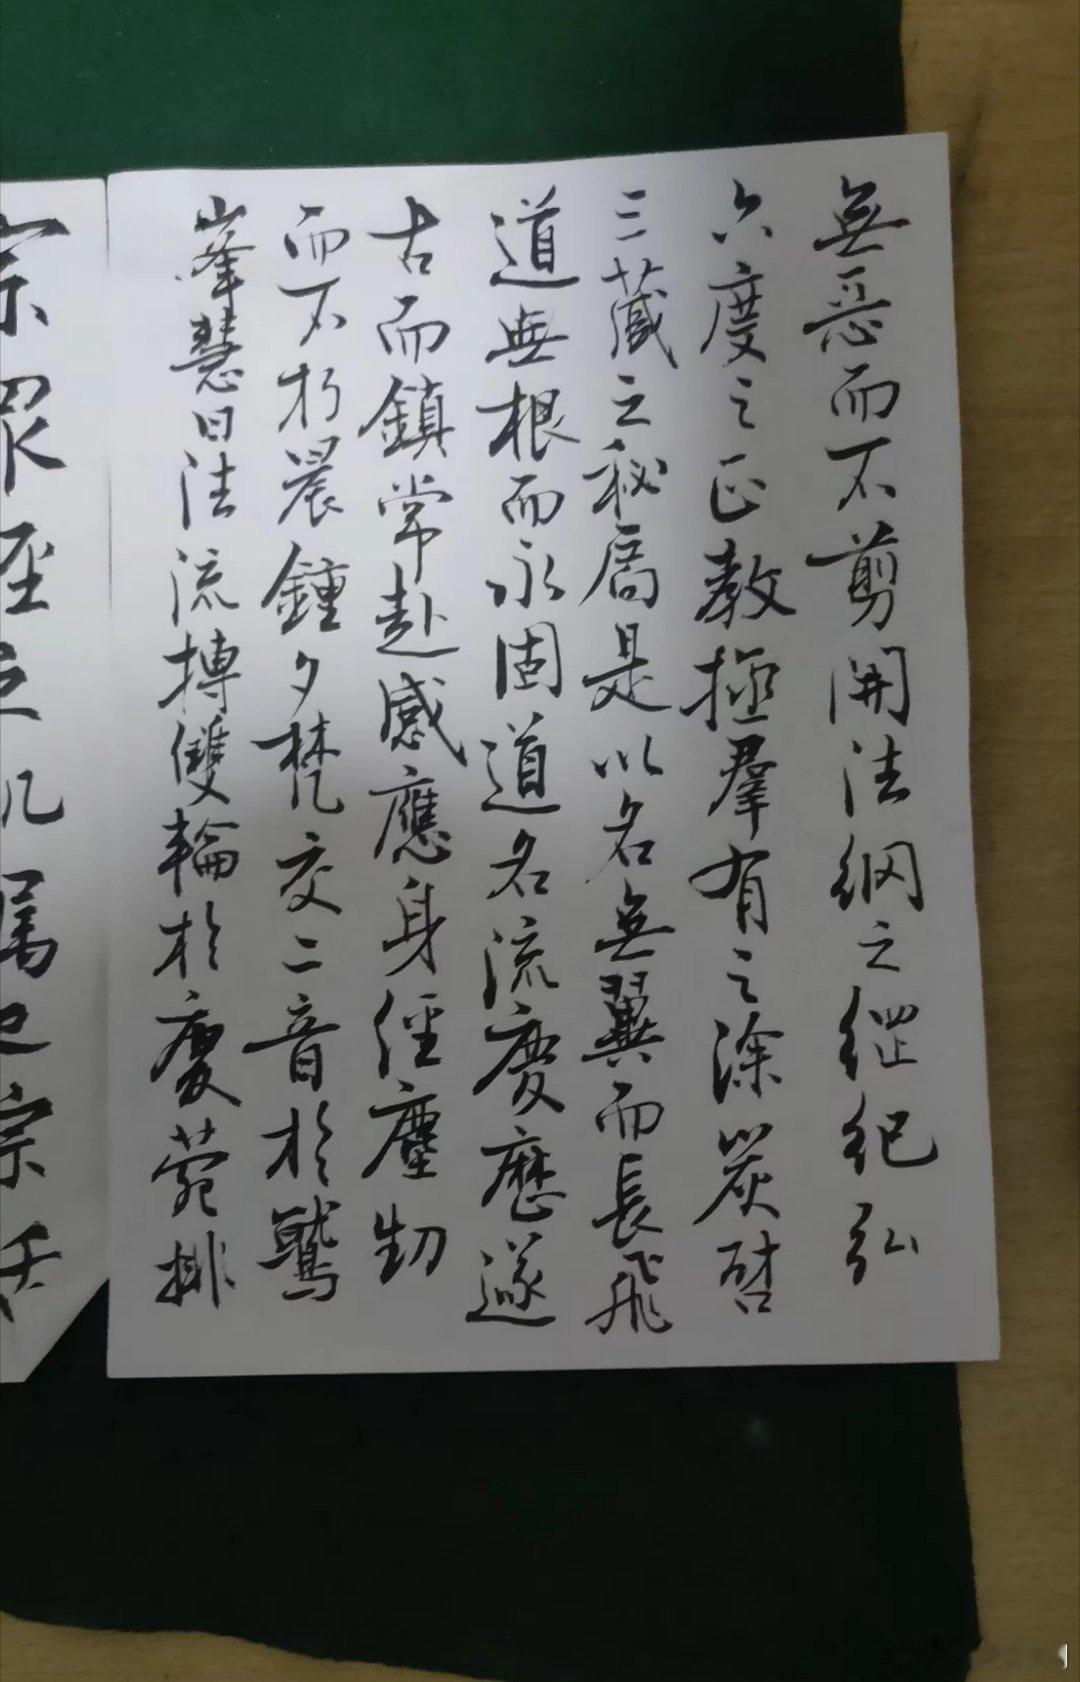 無惡而不剪開法網之綱紀弘
六度之正教拯羣有之涂炭啓
三藏之秘扃是以名無翼而長飛
道無根而永固道名流慶歷遂
古而鎮常赴感應身經塵劫
而不朽晨鍾夕梵交二音於鷲
峯慧日法流轉雙輪於鹿菀排
宗
眾
聖
之
几